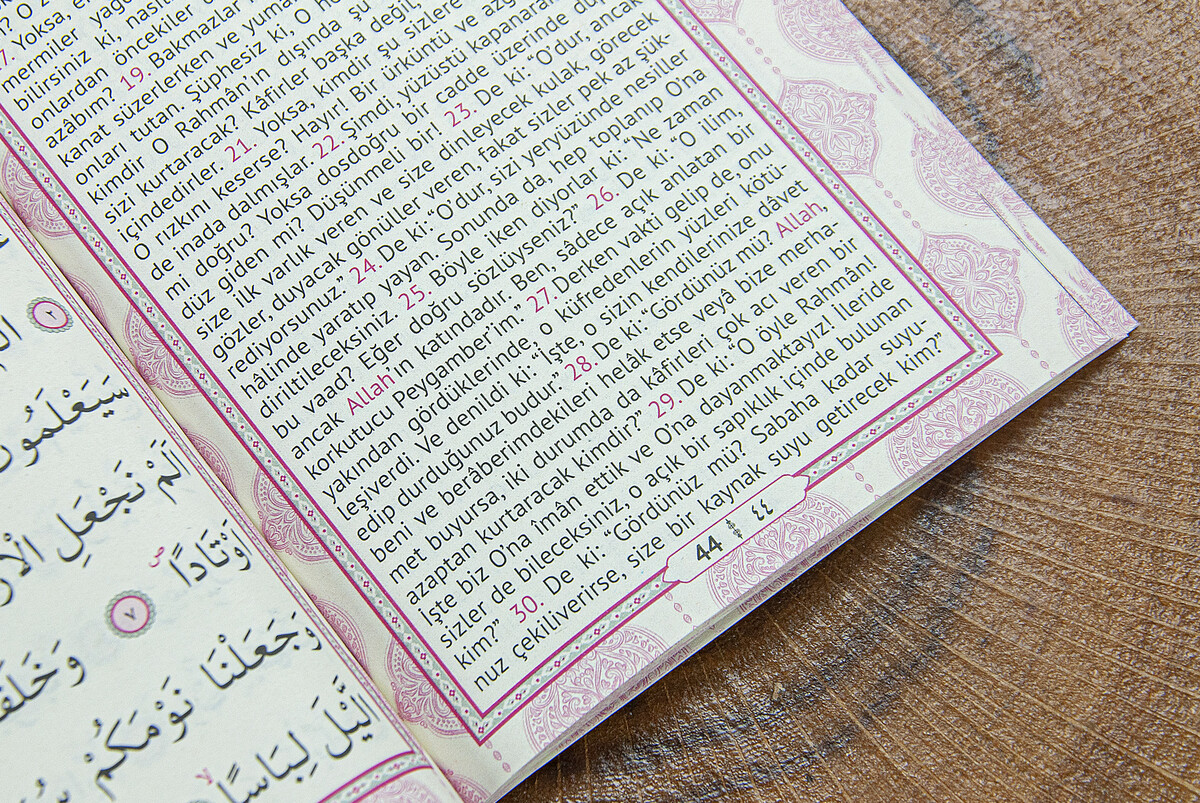 Yoksa,
mermiler
bilirsiniz ki, nasıl
onlardan öncekiler
azâbım? 19. Bakmazlar
kanat süzerlerken ve
onları tutan. Şüphesiz ki, O
kimdir O Rahmân'ın dışında şu
sizi kurtaracak? Kâfirler başka değil,
içindedirler. 21. Yoksa, kimdir şu sizlere
O rızkını keserse? Hayır! Bir ürküntü ve
de inada dalmışlar. 22. Şimdi, yüzüstü kapanarak
mi doğru? Yoksa dosdoğru bir cadde üzerinde
düz giden mi? Düşünmeli bir! 23. De ki: “O'dur, ancak
size ilk varlık veren ve size dinleyecek kulak, görecek
gözler, duyacak gönüller veren, fakat sizler pek az şük-
rediyorsunuz.” 24. De ki: “O'dur, sizi yeryüzünde nesiller
hâlinde yaratıp yayan. Sonunda da, hep toplanıp O'na
diriltileceksiniz. 25. Böyle iken diyorlar ki: “Ne zaman
bu vaad? Eğer doğru sözlüyseniz?” 26. De ki: “O ilim,
ancak Allah'ın katındadır. Ben, sâdece açık anlatan bir
korkutucu Peygamber'im.” 27. Derken vakti gelip de, onu
yakından gördüklerinde, o küfredenlerin yüzleri kötü-
leşiverdi. Ve denildi ki: “İşte, o sizin kendilerinize dâvet
edip durduğunuz budur.” 28. De ki: “Gördünüz mü? Allah,
beni ve berâberimdekileri helâk etse veyâ bize merha-
met buyursa, iki durumda da kâfirleri çok acı veren bir
azaptan kurtaracak kimdir?” 29. De ki: “O öyle Rahmân!
İşte biz O'na îmân ettik ve O'na dayanmaktayız! İleride
sizler de bileceksiniz, o açık bir sapıklık içinde bulunan
kim?” 30. De ki: “Gördünüz mü? Sabaha kadar suyu-
nuz çekiliverirse, size bir kaynak suyu getirecek kim?”
44 ٤٤
٢
سَيَعْلَمُونَ
اَلَمْ نَجْعَلِ
اَوْتَادًا ٧
وَجَعَلْنَا نَوْمَكُمْ
الَّيْلَ لِبَاسًا